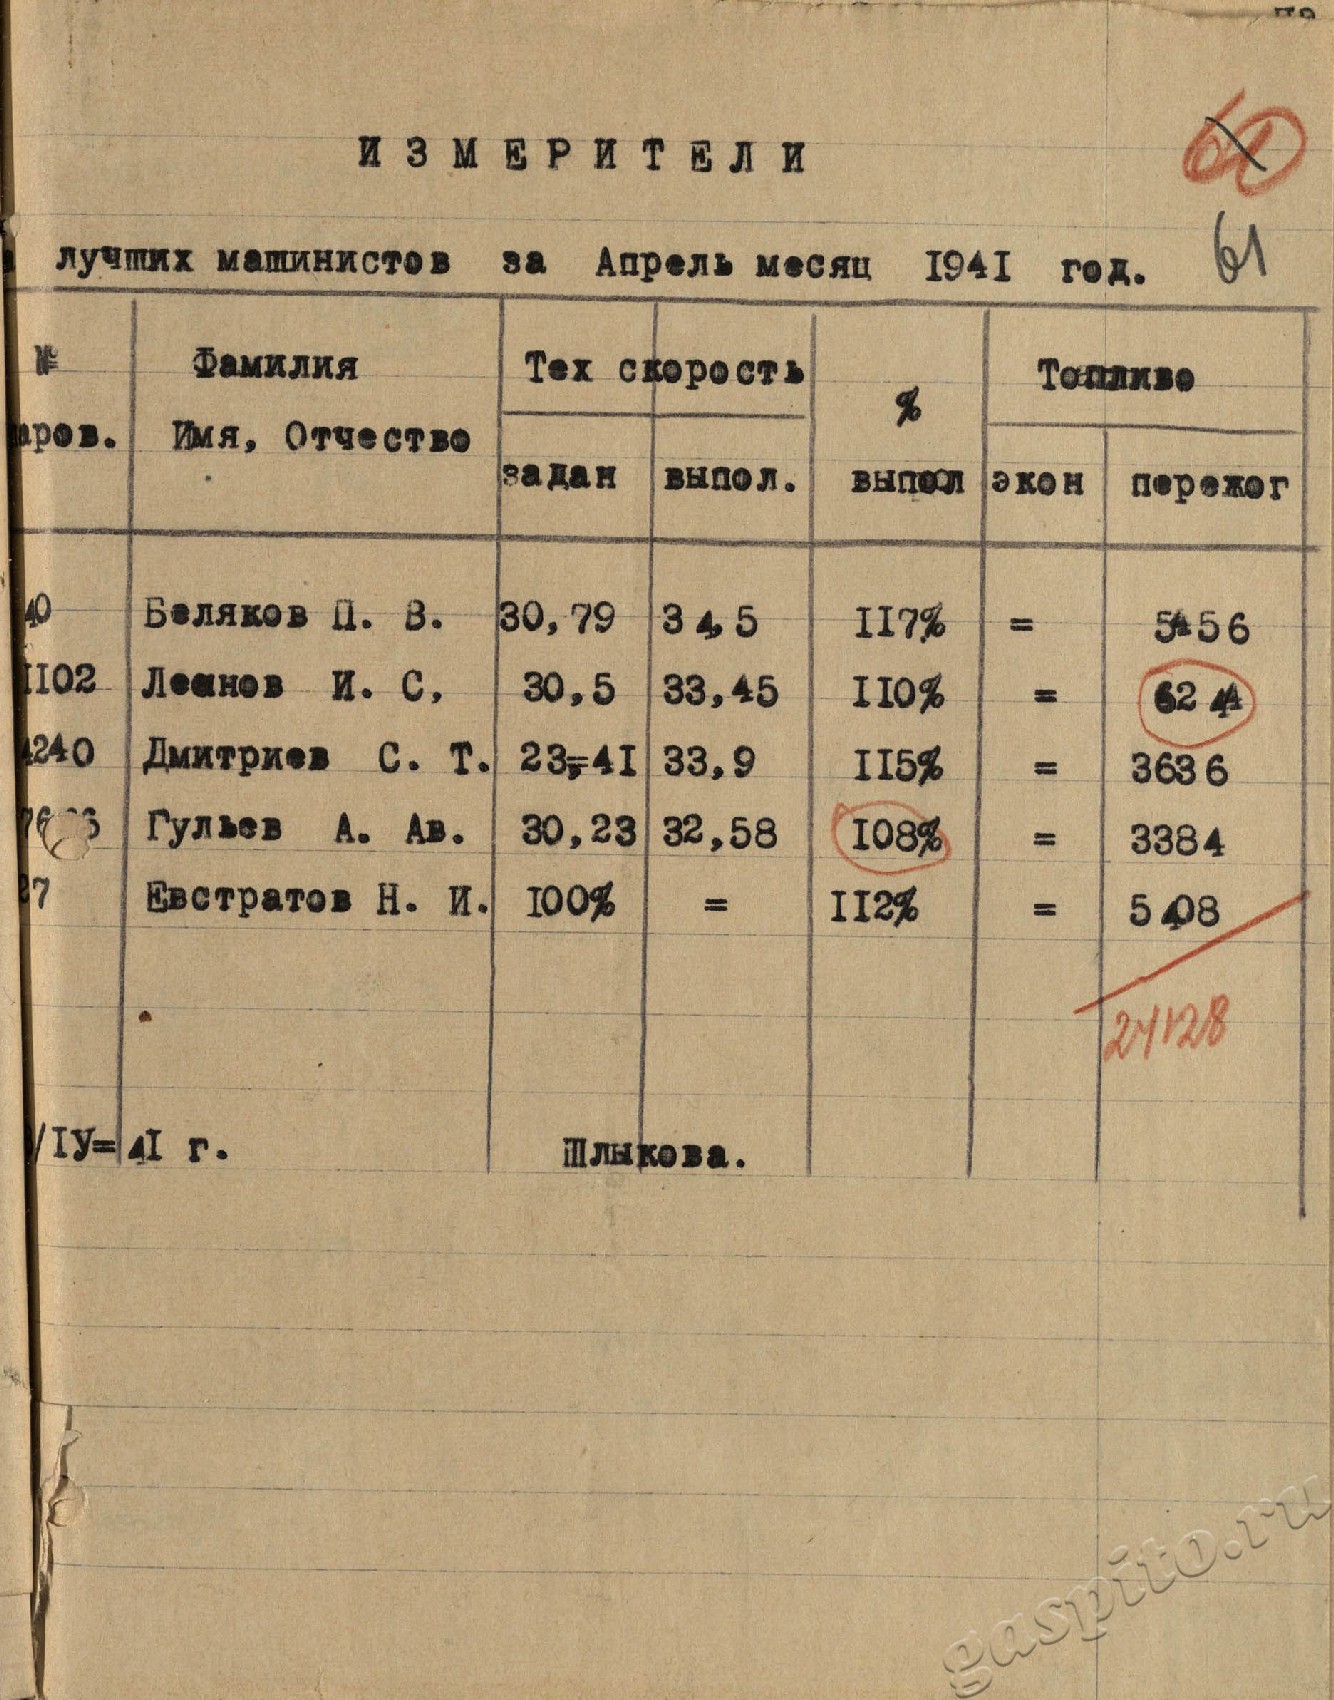 ИЗМЕРИТЕЛИ
61
61
лучших машинистов за Апрель месяц 1941 год.
№ Фамилия Тех скорость % Топливо
аров. Имя, Отчество задан выпол. выпол экон пережог
40 Беляков П. В. 30,79 34,5 117% = 5456
1102 Леонов И. С, 30,5 33,45 110% = 6244
4240 Дмитриев С. Т. 23,=41 33,9 115% = 3636
Гульев А. Ав. 30,23 32,58 108% = 3384
27 Евстратов Н. И. 100% = 112% = 5408
24128
/IУ=41 г. Шлыкова.
gaspito.ru